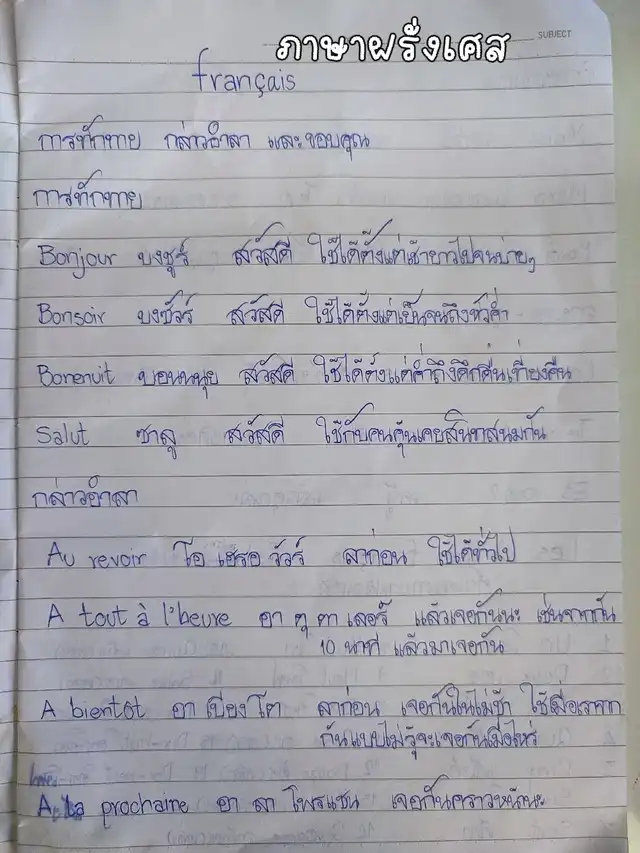 SUBJECT
ภาษาฝรั่งเศส
français
การทักทาย กล่าวอำลา และขอบคุณ
การทักทาย
Bonjour บงชูร์ สวัสดี ใช้ได้ตั้งแต่เช้ายาวไปจนบ่ายๆ
Bonsoir บงชัวร์ สวัสดี ใช้ได้ตั้งแต่เย็นจนถึงหัวค่ำ
Bonenuit บอนนนุย สวัสดี ใช้ได้ตั้งแต่ค่ำถึงดึกดื่นเที่ยงคืน
Salut ซาลู สวัสดี ใช้กับคนคุ้นเคยสนิทสนมกัน
กล่าวอำลา
Au revoir โอ เฮรอ วัวร์ ลาก่อน ใช้ได้ทั่วไป
A tout à l'beure อา ตู ตา เลอร์ แล้วเจอกันนะ เช่นจากกัน
10 นาที แล้วมาเจอกัน
A bientôt อา เบียง โต ลาก่อน เจอกันในไม่ช้า ใช้เมื่อเราจาก
กันแบบไม่รู้จะเจอกันเมื่อไหร่
A La prochaine อา ลา โพรแชน เจอกันคราวหน้านะ